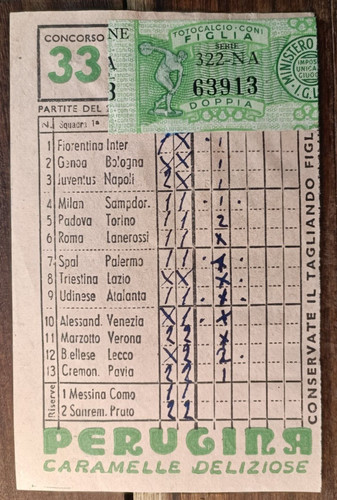 CONCORSO
33
NE
A
3
TOTOCALCIO - CONI
FIGLIA
SERIE
322-NA
63913
DOPPIA
MINISTERO
IMPOS
UNICA
GIUOC
I.G.
PARTITE DEL
N. Squadra 1ª
1 Fiorentina Inter 1 X 1
2 Genoa Bologna X X 1
3 Juventus Napoli 2 X 1
4 Milan Sampdor. 1 1 1
5 Padova Torino 1 1 2
6 Roma Lanerossi 1 1 X
7 Spal Palermo 1 1 X
8 Triestina Lazio X X X
9 Udinese Atalanta 1 1 X
10 Alessand. Venezia X 1 X
11 Marzotto Verona 2 2 X
12 Biellese Lecco X 2 2
13 Cremon. Pavia 2 2 1
Riserve
1 Messina Como 1 1
2 Sanrem. Prato 2 2
CONSERVATE IL TAGLIANDO FIGL
PERUGINA
CARAMELLE DELIZIOSE